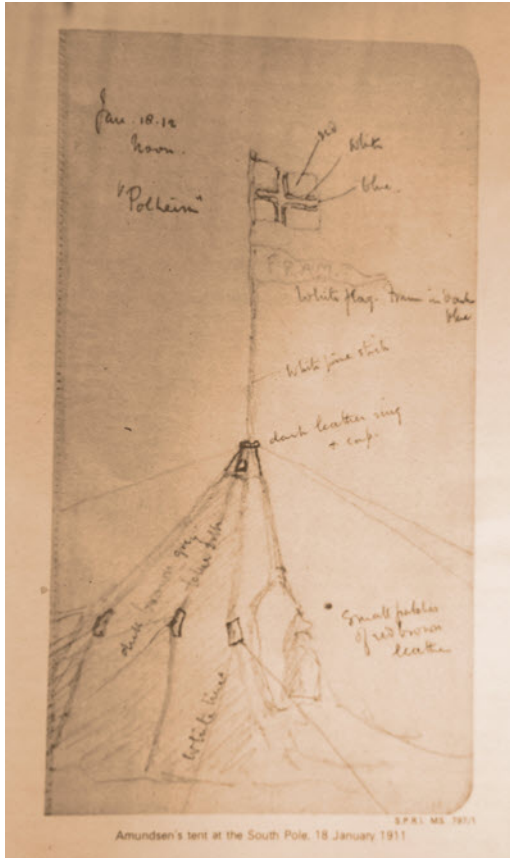 Jan. 18. 12
Noon.
"Polheim"
red
White
blue.
FRAM.
White flag. Fram in dark
blue
White pine stick
dark leather ring
+ cap.
dark
grey
White line
Small patches
of red brown
leather
S.P.R.I. MS. 797/1
Amundsen's tent at the South Pole, 18 January 1911